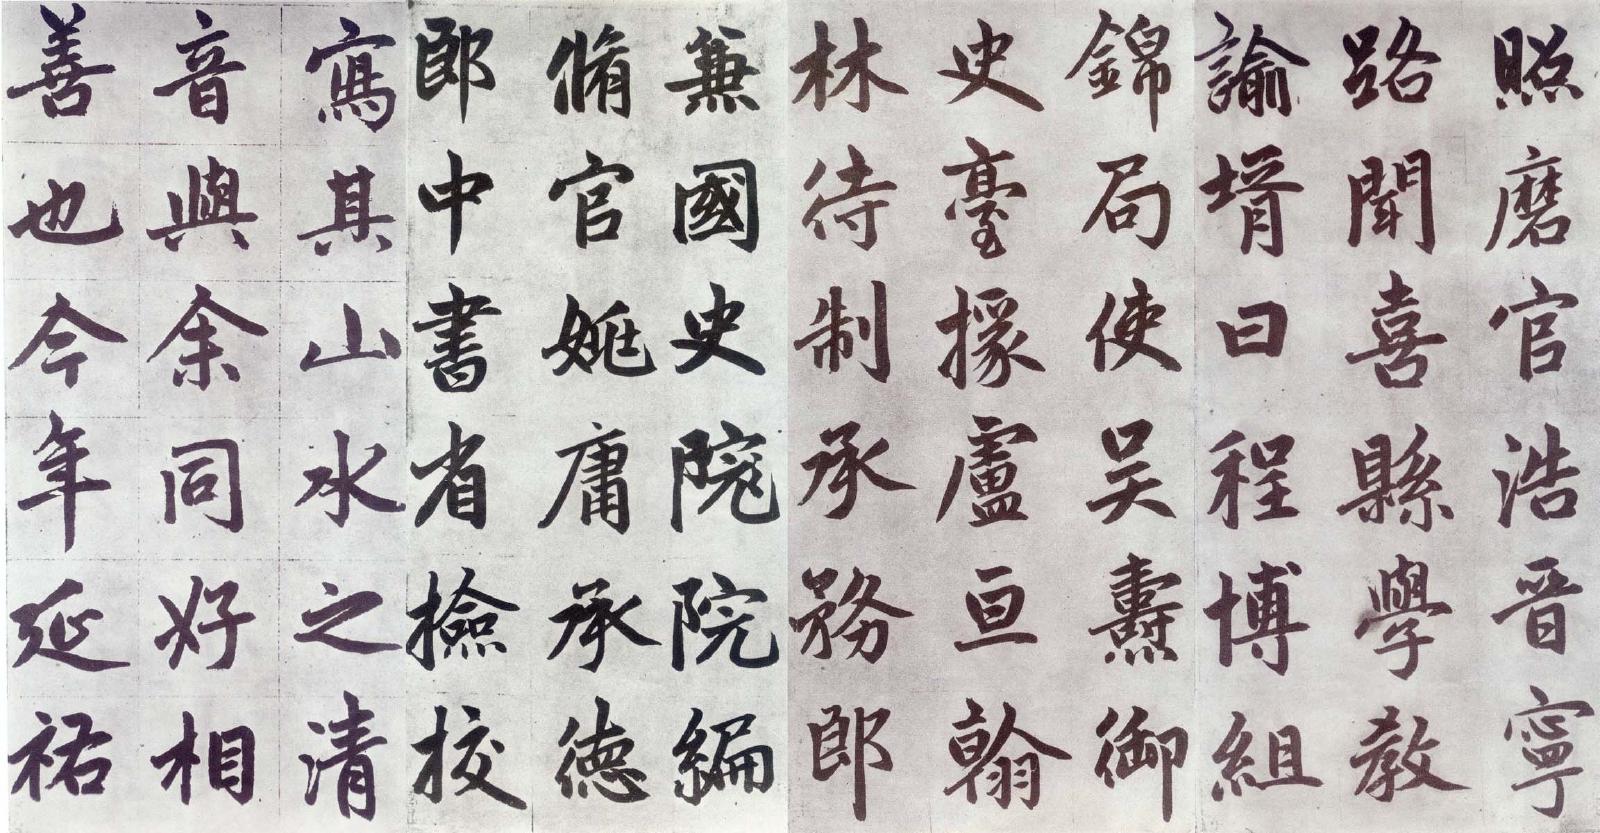 照磨官浩晉寧
路聞喜縣學教
諭壻曰程博組
錦局使吴燾御
史臺掾盧亘翰
林待制承務郎
兼國史院院編
脩官姚庸承德
郎中書省撿校
寫其山水之清
音與余同好相
善也今年延祐